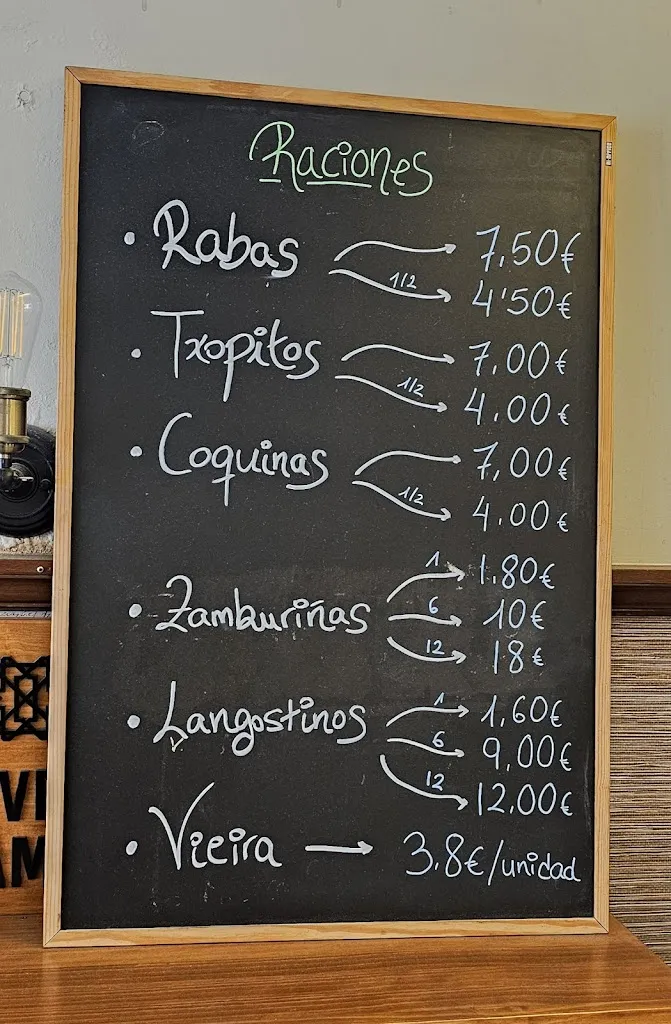 Raciones
• Rabas 7,50€
1/2 4'50€
• Txopitos 7,00€
1/2 4,00€
• Coquinas 7,00€
1/2 4,00€
• Zamburiñas 1 1,80€
6 10€
12 18€
• Langostinos 1 1,60€
6 9,00€
12 12,00€
• Vieira → 3,8€/unidad